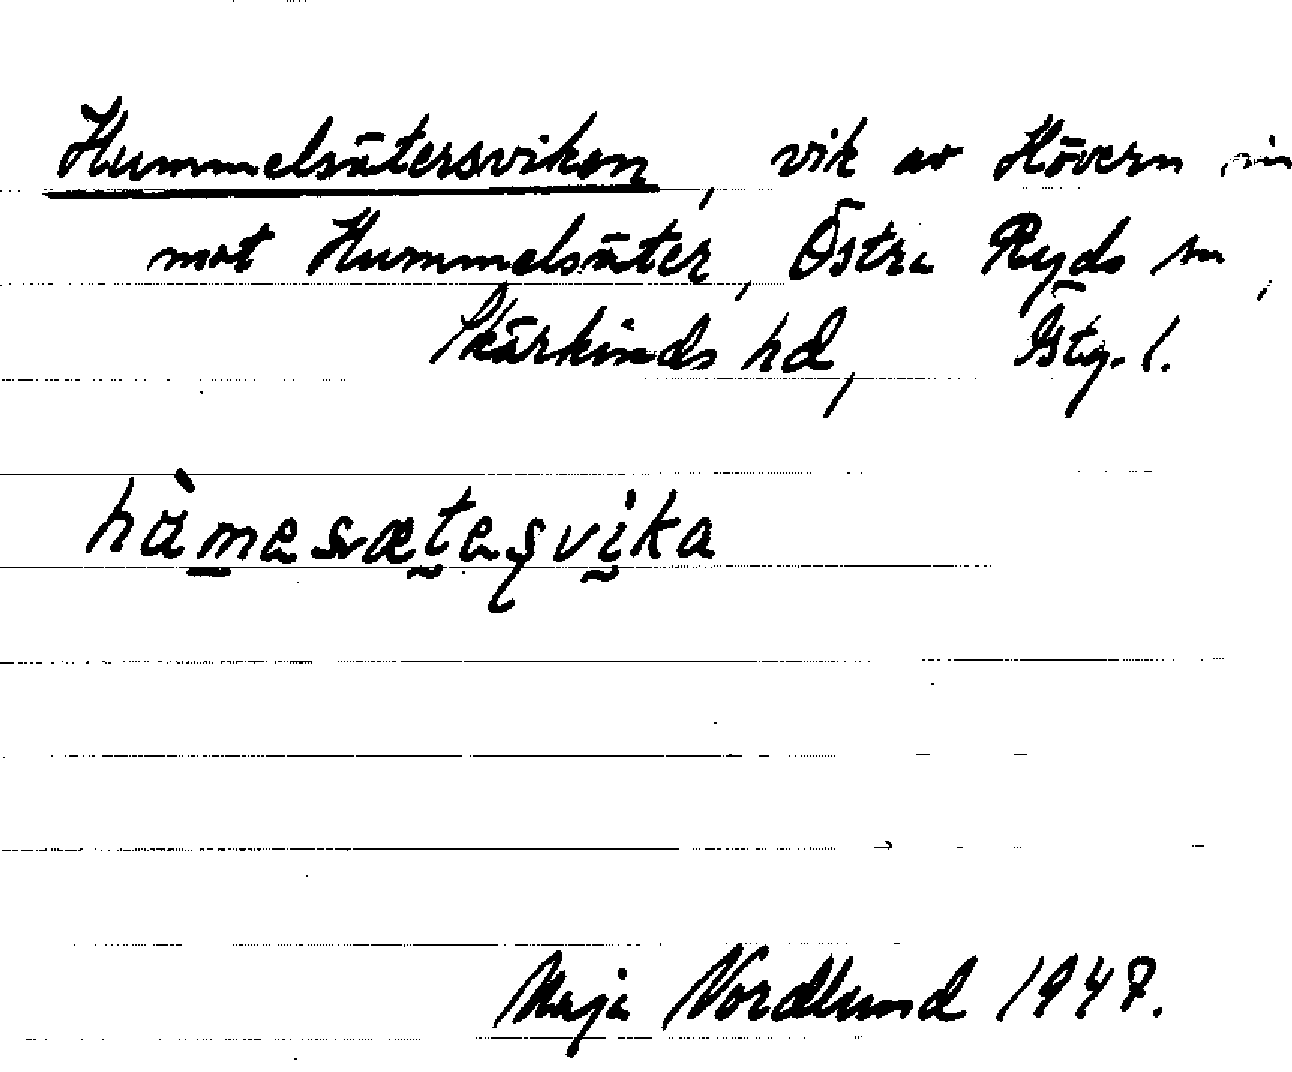 Hummelsätersviken, vik av Hövern in
mot Hummelsäter, Östra Ryds sn,
Skärkinds hd, Östg. l.
hàmesvætesvika
Maja Nordlund 1947.